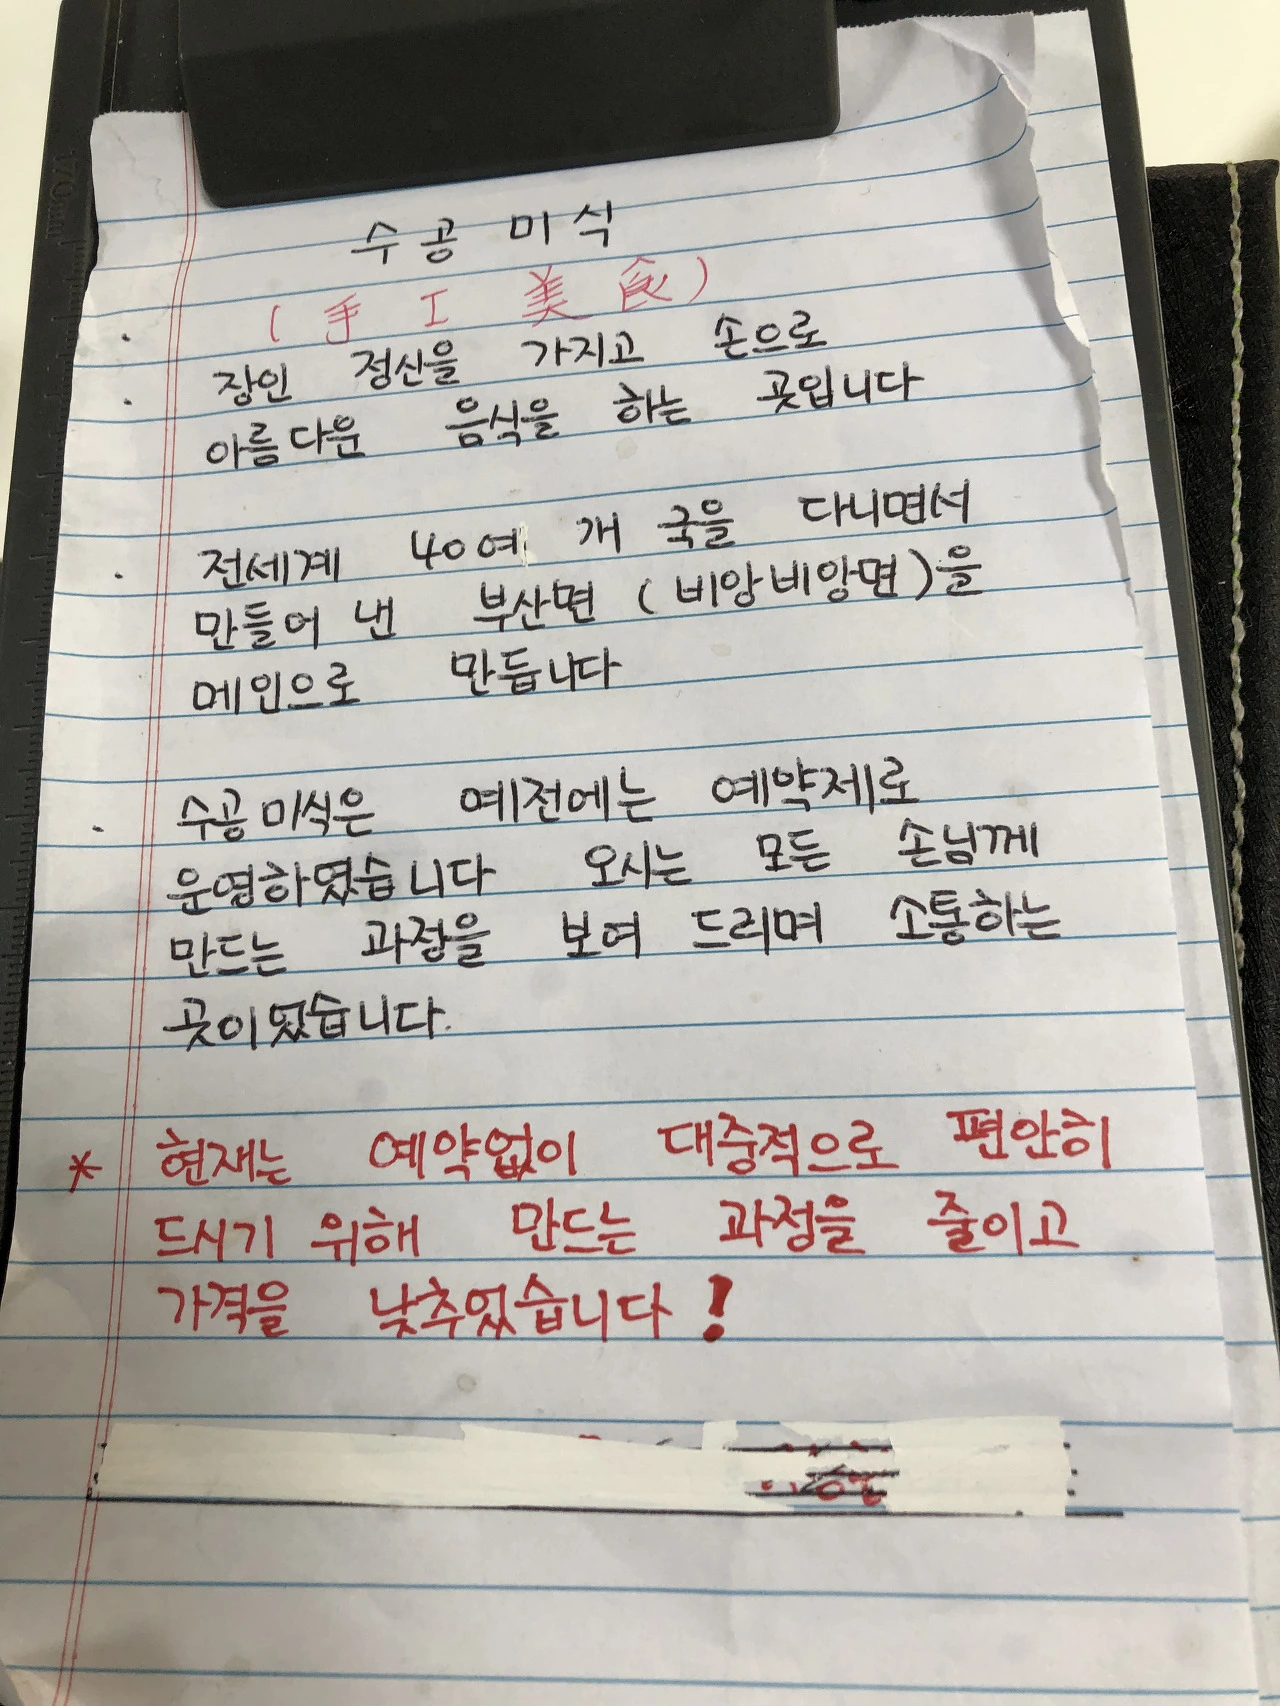 수공 미식
(手工美食)
장인 정신을 가지고 손으로
아름다운 음식을 하는 곳입니다
전세계 40여 개 국을 다니면서
만들어 낸 부산면 (비앙비앙면)을
메인으로 만듭니다
수공미식은 예전에는 예약제로
운영하였습니다 오시는 모든 손님께
만드는 과정을 보여 드리며 소통하는
곳이였습니다.
* 현재는 예약없이 대중적으로 편안히
드시기 위해 만드는 과정을 줄이고
가격을 낮추었습니다!